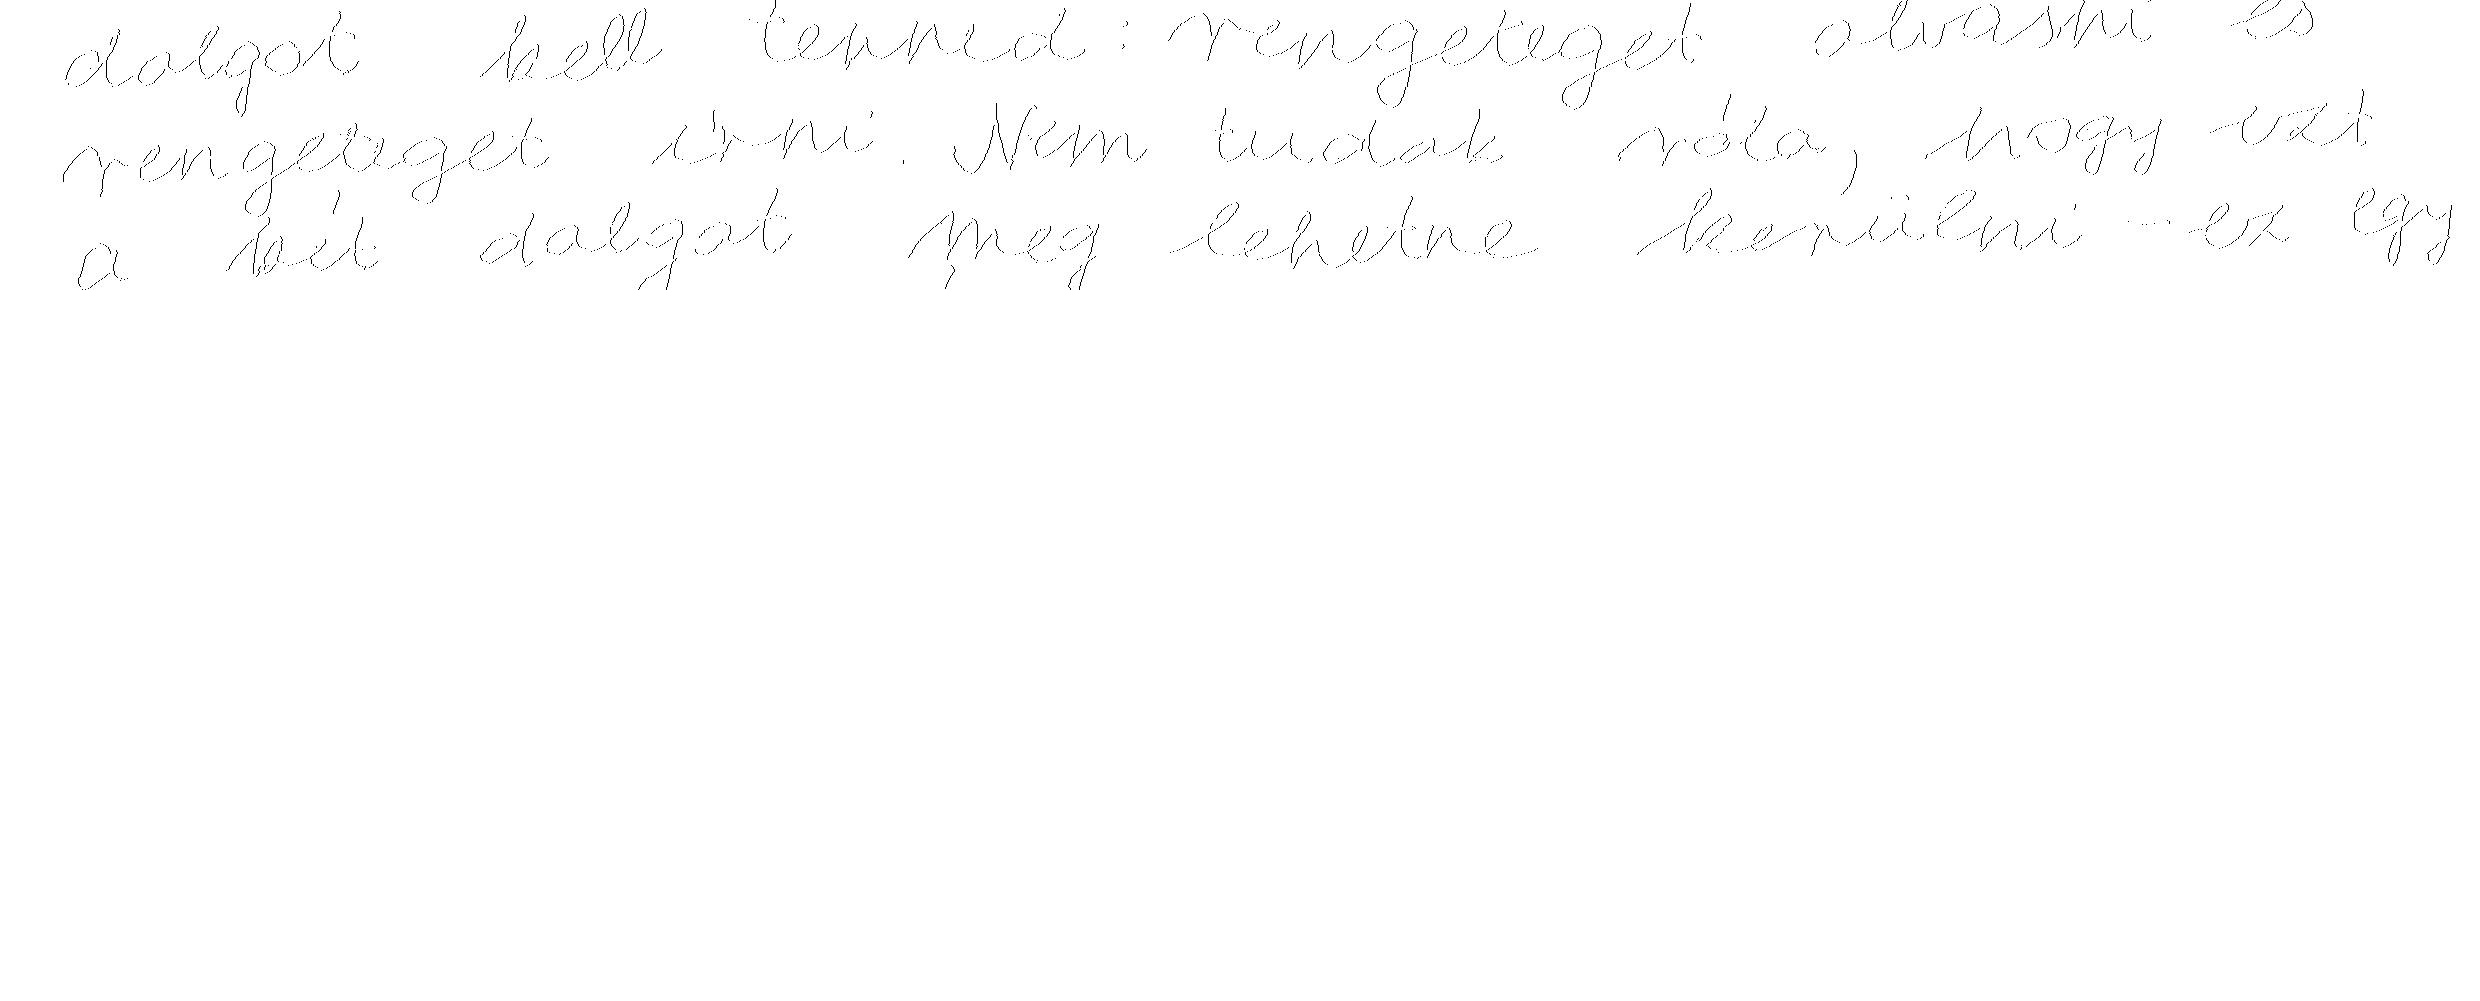 dolgot kell tenned: rengeteget olvasni és
rengeteget írni. Nem tudok róla, hogy ezt
a két dolgot meg lehetne kerülni - ez egy